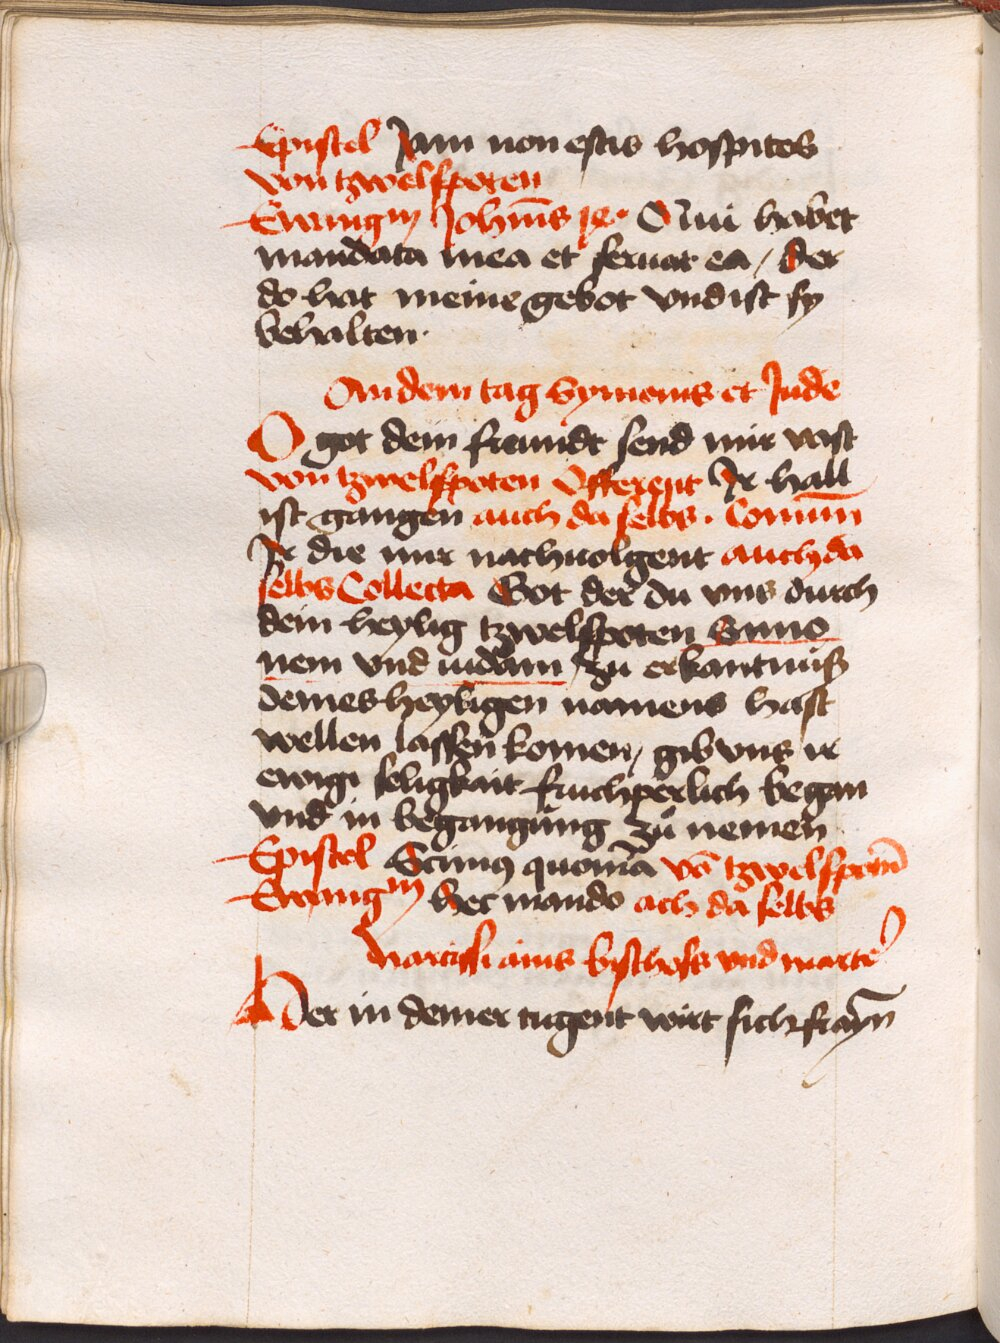 Epistel Jam non estis hospites
von tzwelfpoten
Ewangm Johānis xe. Qui habet
mandata mea et seruat ea / Der
do hat meine gebot vnd ist sy
behalten.
An dem tag Symonis et Jude
O got dein freundt send mir vast
von tzwelfpoten Offerent Jr hall
ist gangen auch da selbs. Comun̄
Jr die mir nachuolgent auch da
selbs Collecta Got der du vns durch
dein heylig tzwelfpoten Simo
nem vnd iudam zu erkantnuß
deines heyligen namens hast
wellen lassen komen / gib vns ir
ewige seligkait fruchperlich began
vnd in begangung zů nemen
Epistel Scimus quoniā vō tzwelfpotn̄
Ewangm Hec mando ach da selbs
Narcissi ains byschofs vnd marter
Her in deiner tugent wirt sich frayn̄